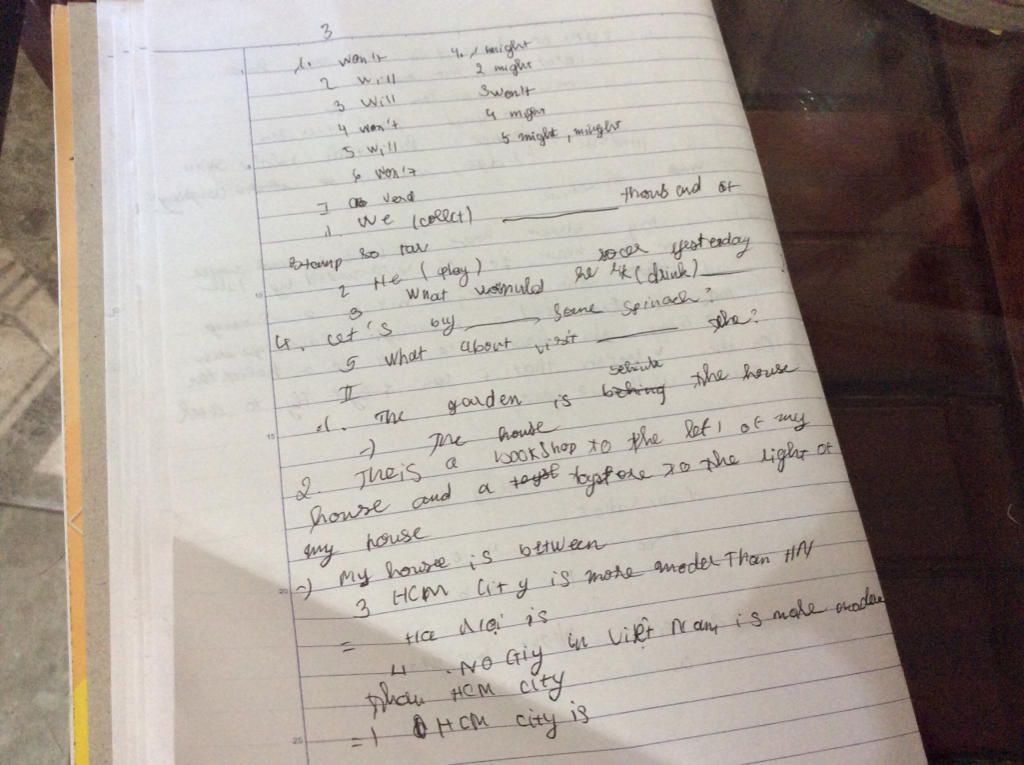 3
1. won't 4. 1 might
2 will 2 might
3 will 3 won't
4 won't 4 migh
5 will 5 might, might
6 won't
I verd
1. We (collect) ______ thousand of
stamp so far
2 He (play) socer yesterday
3 What would he (drink) ______
4. Let's buy ______ some spinach?
5 What about visit ______ the?
II
1. The garden is behing the house
-) The house
2. Theis a bookshop to the left of my
house and a toystore to the right of
my house
-) My house is between
3 HCM City is more model Than HN
= Ha Nội is
4. No City in Việt Nam is more moden
than HCM city
= 1 HCM city is